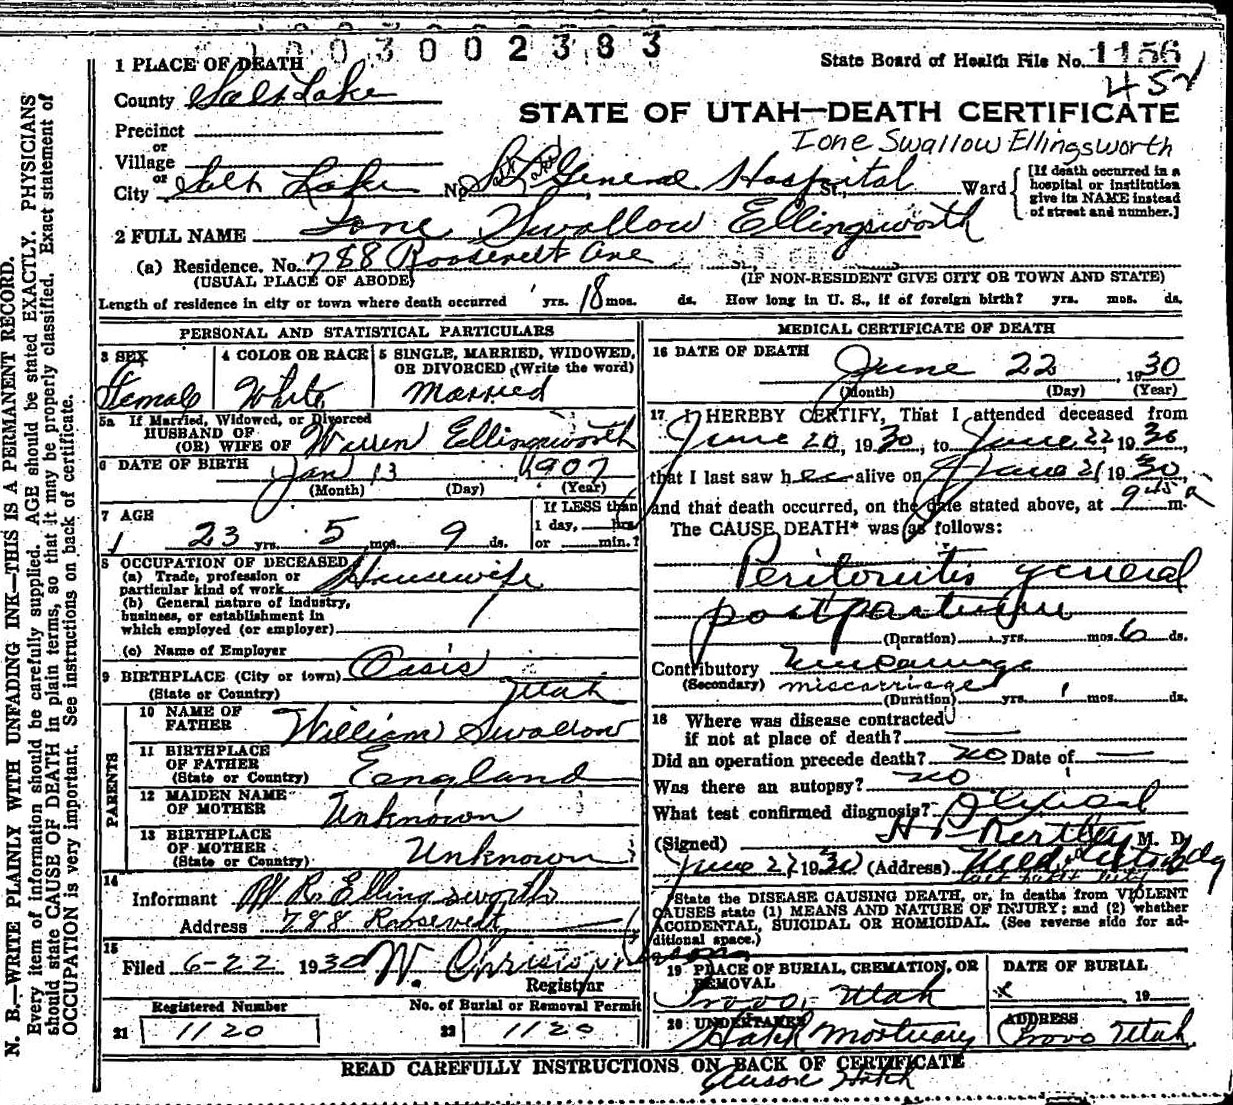 1003002383
State Board of Health File No. 1156
452
1 PLACE OF DEATH
County Salt Lake
STATE OF UTAH—DEATH CERTIFICATE
Precinct
or
Village
Ione Swallow Ellingsworth
or
City Salt Lake No. S. L. General Hospital St., Ward
Salt Lake
[If death occurred in a hospital or institution give its NAME instead of street and number.]
2 FULL NAME Ione Swallow Ellingsworth
(a) Residence. No. 788 Roosevelt Ave
(USUAL PLACE OF ABODE) (IF NON-RESIDENT GIVE CITY OR TOWN AND STATE)
Length of residence in city or town where death occurred yrs. 18 mos. ds. How long in U. S., if of foreign birth? yrs. mos. ds.
PERSONAL AND STATISTICAL PARTICULARS
3 SEX
Female
4 COLOR OR RACE
White
5 SINGLE, MARRIED, WIDOWED, OR DIVORCED (Write the word)
Married
5a If Married, Widowed, or Divorced
HUSBAND OF
(OR) WIFE OF Warren Ellingsworth
6 DATE OF BIRTH Jan 13, 1907
(Month) (Day) (Year)
7 AGE
23 yrs. 5 mos. 9 ds.
If LESS than
1 day, hrs.
or min.?
8 OCCUPATION OF DECEASED
(a) Trade, profession or
particular kind of work Housewife
(b) General nature of industry,
business, or establishment in
which employed (or employer)
(c) Name of Employer
9 BIRTHPLACE (City or town) Oasis
(State or Country) Utah
PARENTS
10 NAME OF
FATHER William Swallow
11 BIRTHPLACE
OF FATHER
(State or Country) England
12 MAIDEN NAME
OF MOTHER Unknown
13 BIRTHPLACE
OF MOTHER
(State or Country) Unknown
14
Informant W R Ellingsworth
Address 788 Roosevelt
15
Filed 6-22 1930 W. Christopherson
Registrar
Registered Number
21 1120
No. of Burial or Removal Permit
22 1120
MEDICAL CERTIFICATE OF DEATH
16 DATE OF DEATH
June 22, 1930
(Month) (Day) (Year)
17 I HEREBY CERTIFY, That I attended deceased from
June 20, 1930, to June 22, 1930,
that I last saw her alive on June 21 1930
and that death occurred, on the date stated above, at 9 45 a m.
The CAUSE DEATH* was as follows:
Peritonitis general
postpartum
(Duration) yrs. mos. 6 ds.
Contributory Miscarriage
(Secondary) miscarriage
(Duration) yrs. mos. ds.
18 Where was disease contracted
if not at place of death?
Did an operation precede death? no Date of
Was there an autopsy? no
What test confirmed diagnosis?
(Signed) M. D.
June 22 1930 (Address)
*State the DISEASE CAUSING DEATH, or, in deaths from VIOLENT
CAUSES state (1) MEANS AND NATURE OF INJURY; and (2) whether
ACCIDENTAL, SUICIDAL OR HOMICIDAL. (See reverse side for ad-
ditional space.)
19 PLACE OF BURIAL, CREMATION, OR
REMOVAL
Provo, Utah
DATE OF BURIAL
, 19
20 UNDERTAKER
Hatch Mortuary
ADDRESS
Provo Utah
READ CAREFULLY INSTRUCTIONS ON BACK OF CERTIFICATE
Hatch
N. B.—WRITE PLAINLY WITH UNFADING INK—THIS IS A PERMANENT RECORD.
Every item of information should be carefully supplied. AGE should be stated EXACTLY. PHYSICIANS
should state CAUSE OF DEATH in plain terms, so that it may be properly classified. Exact statement of
OCCUPATION is very important. See instructions on back of certificate.